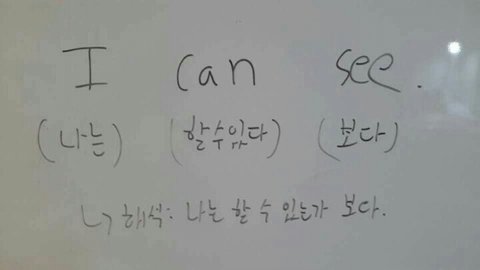 I can see.
(나는) (할 수 있다) (보다)
↳ 해석: 나는 할 수 있는가 보다.